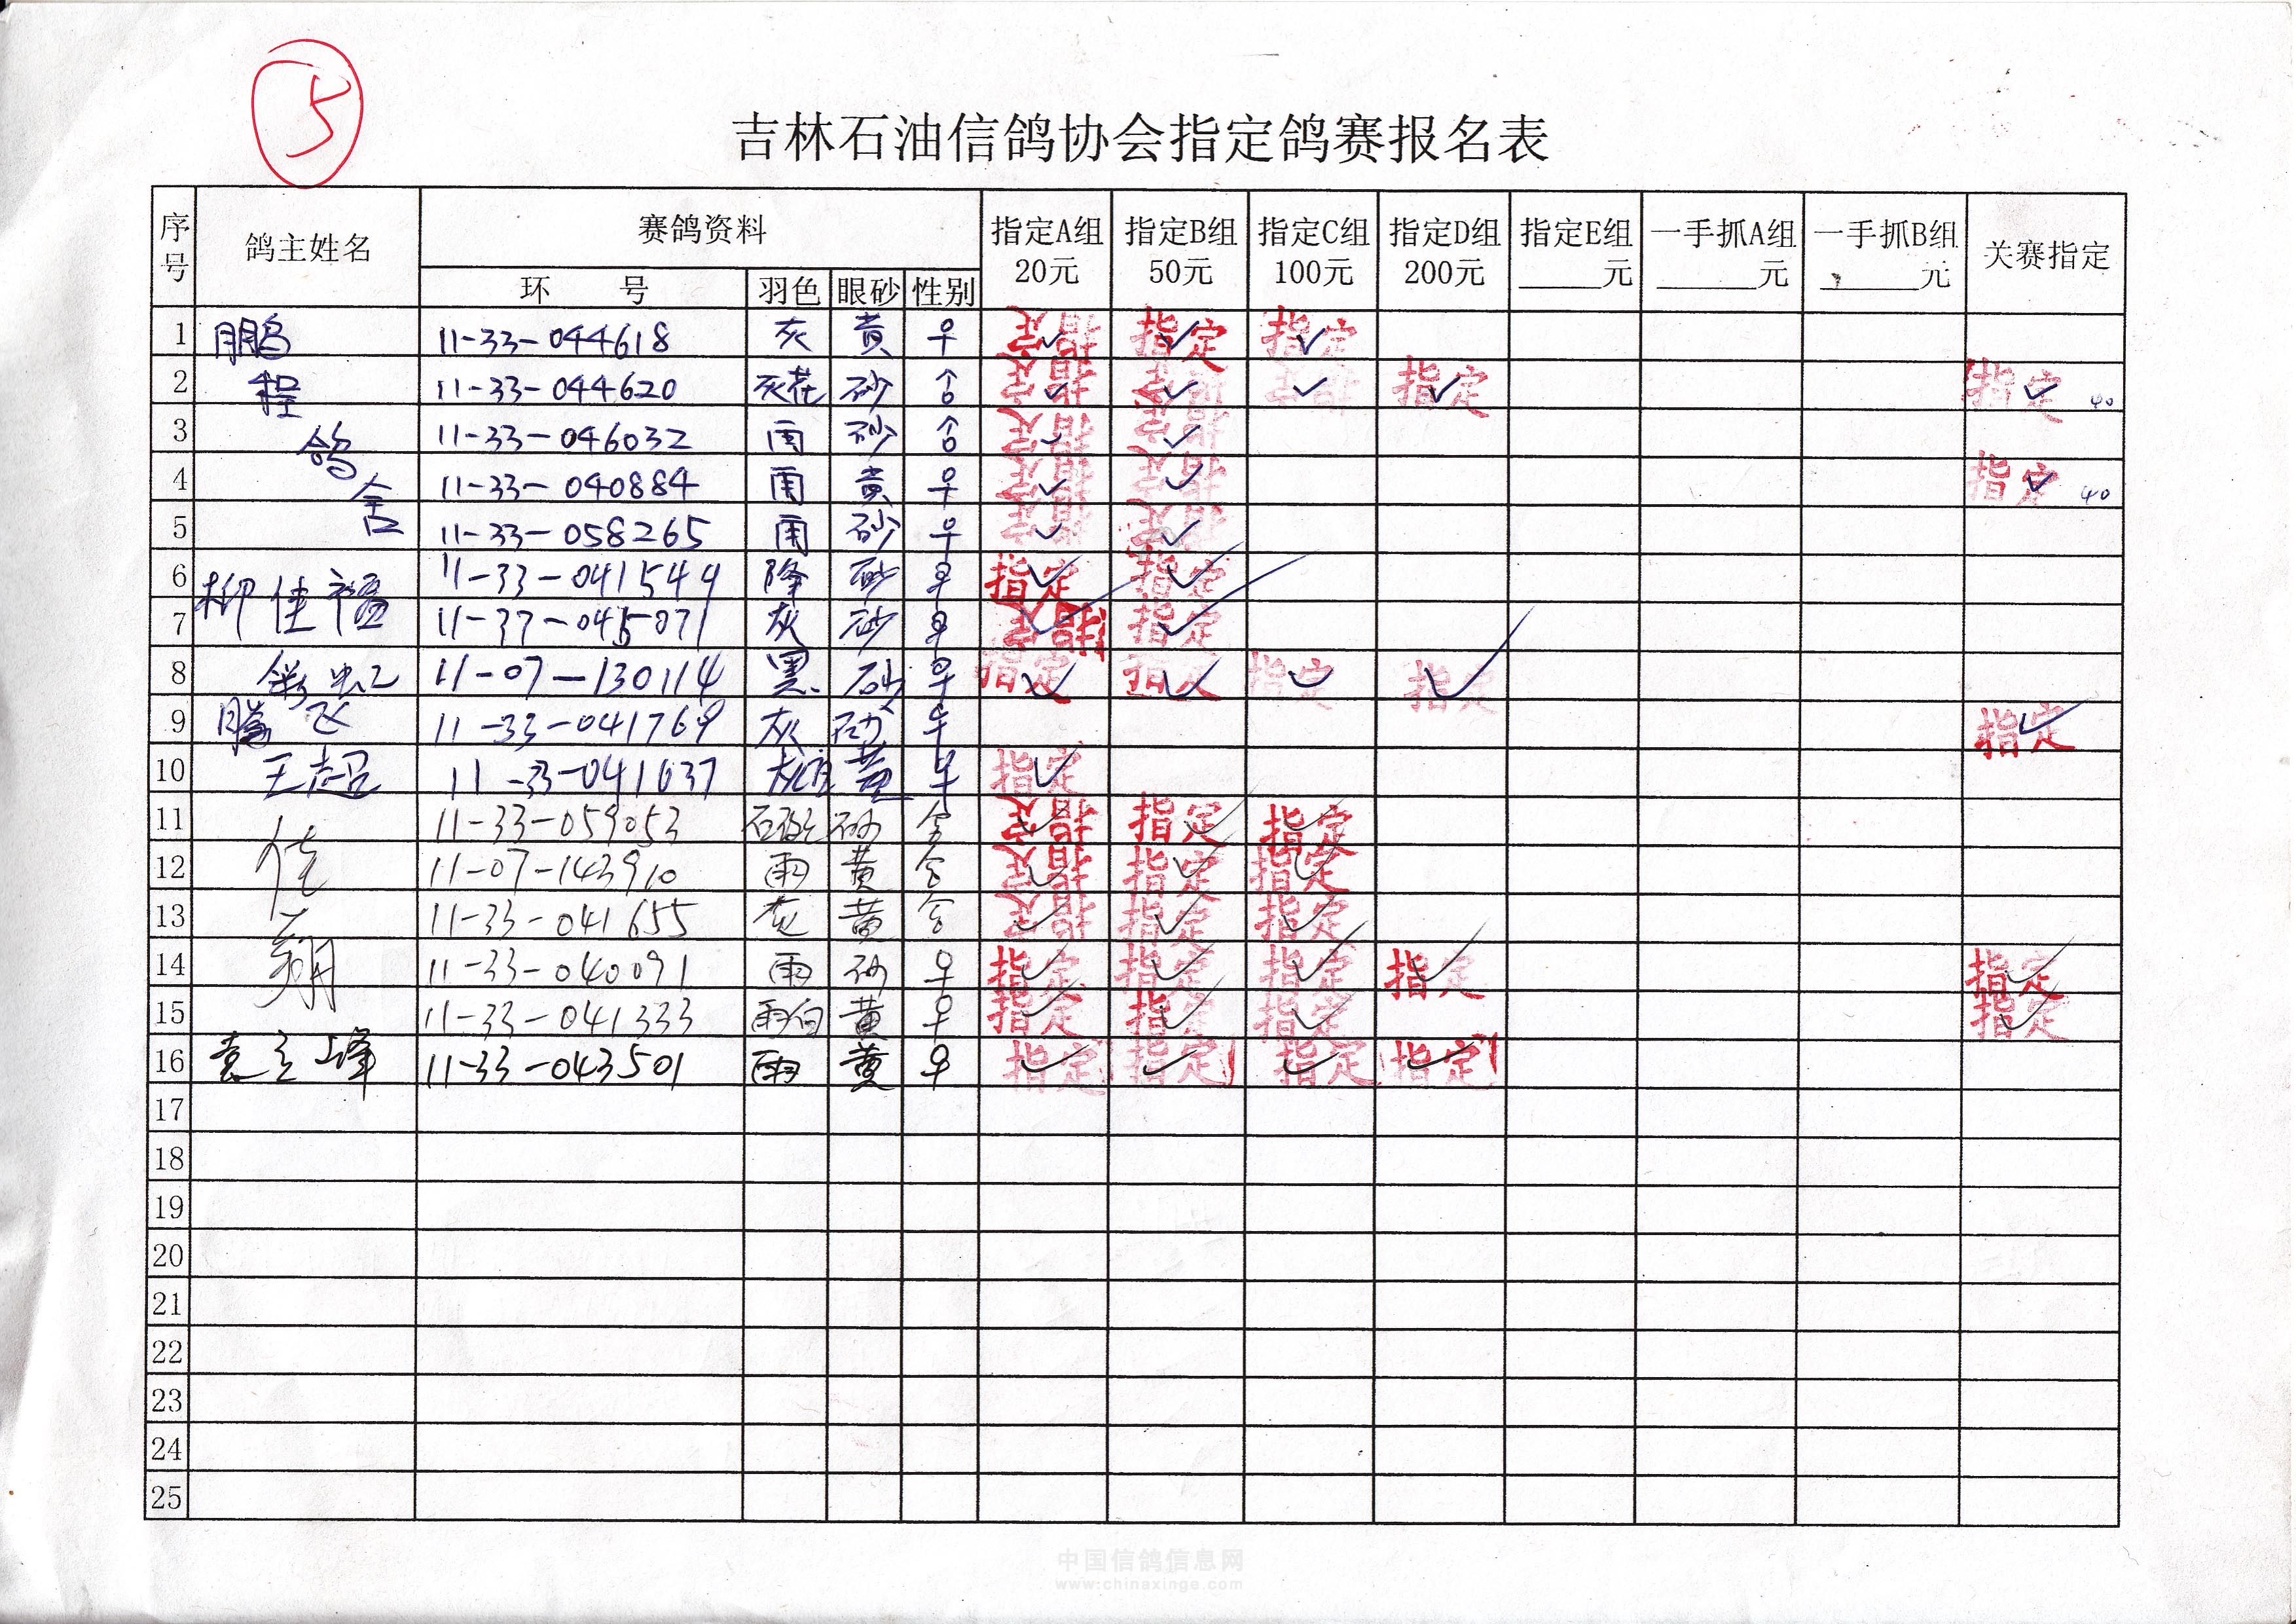 5
吉林石油信鸽协会指定鸽赛报名表
序号 鸽主姓名 赛鸽资料 指定A组 20元 指定B组 50元 指定C组 100元 指定D组 200元 指定E组 ____元 一手抓A组 ____元 一手抓B组 ____元 关赛指定
环 号 羽色 眼砂 性别
1 鹏 11-33-044618 灰 黄 ♀ 指定✓ 指定✓ 指定✓
2 程 11-33-044620 灰花 砂 ♂ 指定✓ 指定✓ 指定✓ 指定✓ 指定✓ 40
3 鸽 11-33-046032 雨 砂 ♂ 指定✓ 指定✓
4 舍 11-33-040884 雨 黄 ♀ 指定✓ 指定✓ 指定✓ 40
5 11-33-058265 雨 砂 ♀ 指定✓ 指定✓
6 柳佳福 11-33-041544 降 砂 ♀ 指定✓ 指定✓
7 11-37-045071 灰 砂 ♀ 指定✓ 指定✓
8 彩虹 11-07-130114 黑 砂 ♀ 指定✓ 指定✓ 指定✓ 指定✓
9 腾飞 11-33-041769 灰 砂 ♀ 指定✓
10 王志超 11-33-041037 黄 ♀ 指定✓
11 11-33-059053 砂 指定✓ 指定✓ 指定✓
12 佳 11-07-143910 雨 黄 指定✓ 指定✓ 指定✓
13 11-33-041655 灰 黄 指定✓ 指定✓ 指定✓
14 翔 11-33-040091 雨 砂 ♀ 指定✓ 指定✓ 指定✓ 指定✓ 指定✓
15 11-33-041333 雨白 黄 ♀ 指定✓ 指定✓ 指定✓ 指定✓
16 袁立峰 11-33-043501 雨 黄 ♀ 指定✓ 指定✓ 指定✓ 指定✓
17
18
19
20
21
22
23
24
25
中国信鸽信息网
www.chinaxinge.com